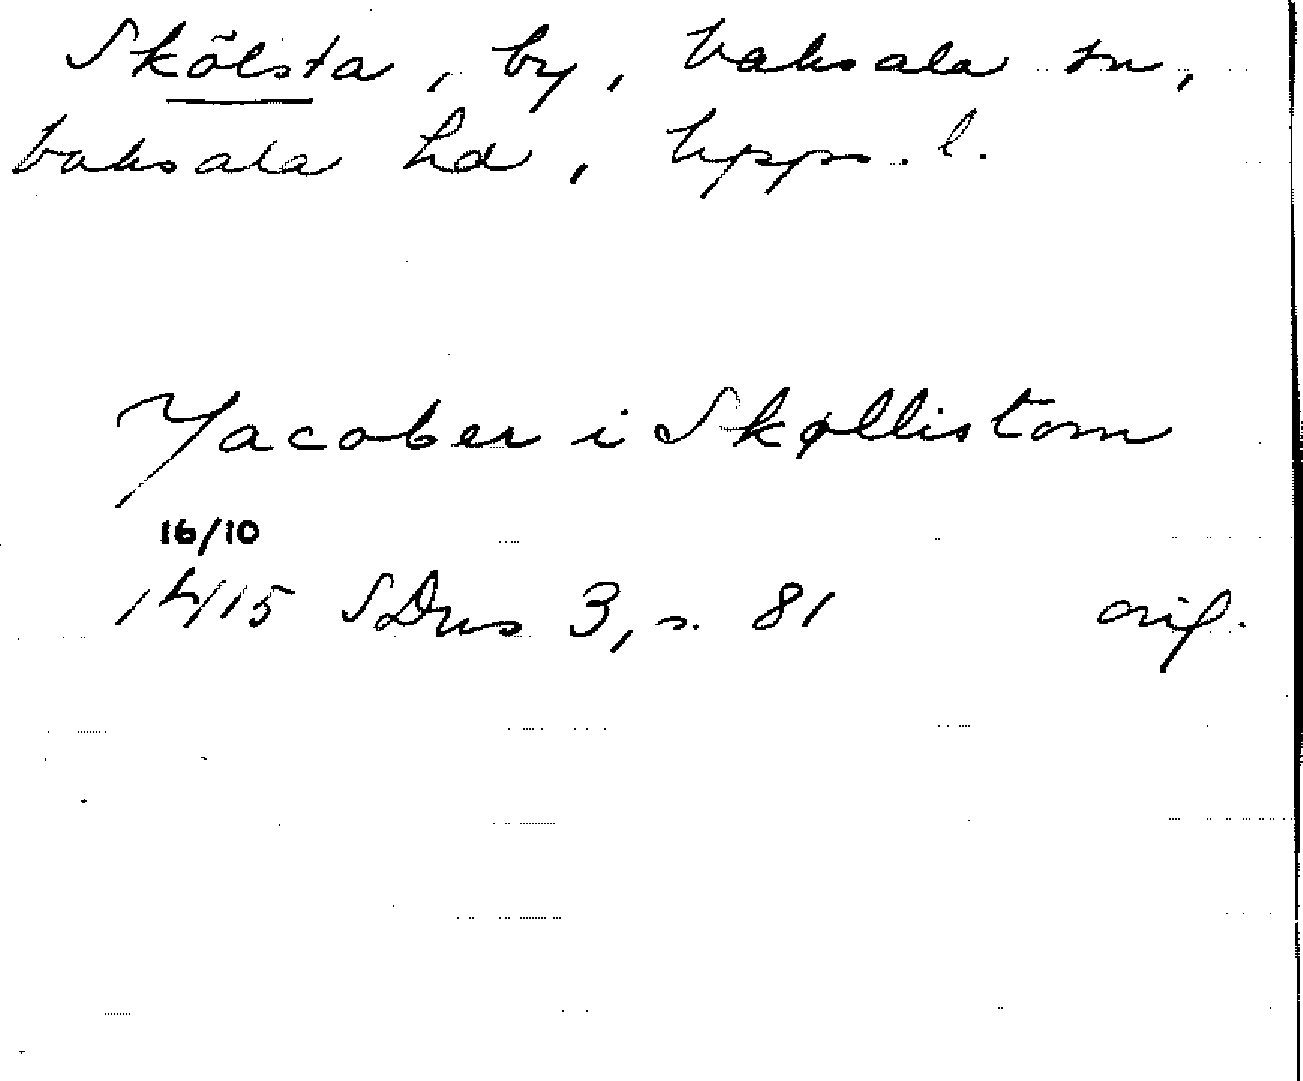 Skölsta, by, Vaksala sn,
Vaksala hd, Upps. l.
Jacober i Skøllistom
16/10
1415 SDns 3, s. 81 orig.